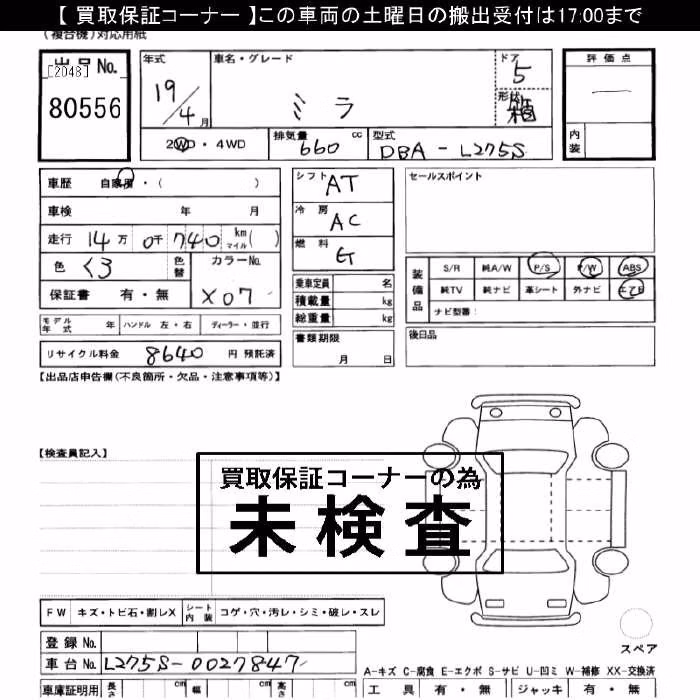 【 買取保証コーナー 】この車両の土曜日の搬出受付は17:00まで
(複合機)対応用紙
出品No.
[2048]
80556
年式
19/4月
車名・グレード
ミラ
ドア
5
形状
箱
評価点
—
内装
2WD・4WD
排気量 660 cc
型式 DBA-L275S
車歴 自家用・( )
車検 年 月
走行 14万 0千 740 km マイル( )
色 くろ 色替
カラーNo. X07
保証書 有・無
シフト AT
冷房 AC
燃料 G
乗車定員 名
積載量 kg
総重量 kg
書類期限
月 日
セールスポイント
装備品
S/R 純A/W P/S P/W ABS
純TV 純ナビ 革シート 外ナビ エアB
ナビ型番:
後日品
モデル年式 年 ハンドル 左・右 ディーラー・並行
リサイクル料金 8640 円 預託済
【出品店申告欄(不良箇所・欠品・注意事項等)】
【検査員記入】
買取保証コーナーの為
未検査
FW キズ・トビ石・割レX シート内装 コゲ・穴・汚レ・シミ・破レ・スレ
登録No.
車台No. L275S-0027847
スペア
A-キズ C-腐食 E-エクボ S-サビ U-凹ミ W-補修 XX-交換済
車庫証明用 長さ cm 幅 cm 高さ cm
工具 有・無 ジャッキ 有・無